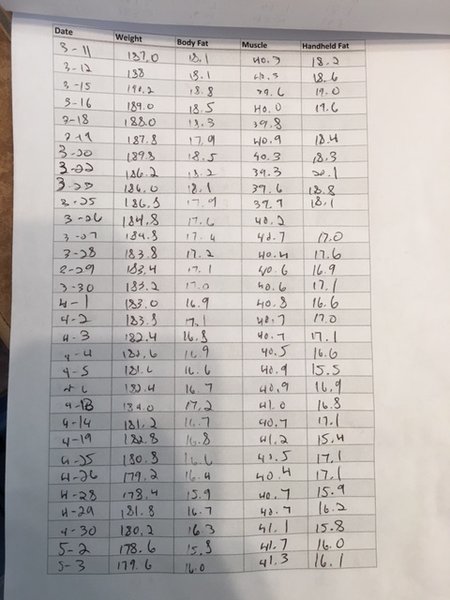 Date Weight Body Fat Muscle Handheld Fat
3-11 187.0 18.1 40.3 18.2
3-12 188 18.1 18.6
3-15 190.2 18.8 39.6 19.0
3-16 189.0 18.5 40.0 19.6
3-18 188.0 18.3 39.8
3-19 187.8 17.9 40.9 18.4
3-20 189.8 18.5 40.3 18.3
3-22 186.2 18.2 39.3 20.1
186.0 18.1 39.6 18.8
3-25 186.8 17.9 39.7 18.1
3-26 184.8 17.6 40.2
3-27 184.8 17.4 40.7 17.0
3-28 183.8 17.2 40.4 17.6
3-29 183.4 17.1 40.6 16.9
3-30 183.2 17.0 40.6 17.1
4-1 183.0 16.9 40.8 16.6
4-2 183.8 17.1 40.7 17.0
4-3 182.4 16.8 40.7 17.1
4-4 182.6 16.9 40.5 16.6
4-5 181.6 16.6 40.9 15.5
4-6 182.4 16.7 40.9 16.9
4-13 184.0 17.2 41.0 16.8
4-14 181.2 16.7 40.7 17.1
4-19 182.8 16.8 41.2 15.4
4-25 180.8 16.6 17.1
4-26 179.2 16.4 40.4 17.1
4-28 178.4 15.9 40.7 15.9
4-29 181.8 16.7 40.7 16.2
4-30 180.2 16.3 41.1 15.8
5-2 178.6 15.8 41.7 16.0
5-3 179.6 16.0 41.3 16.1